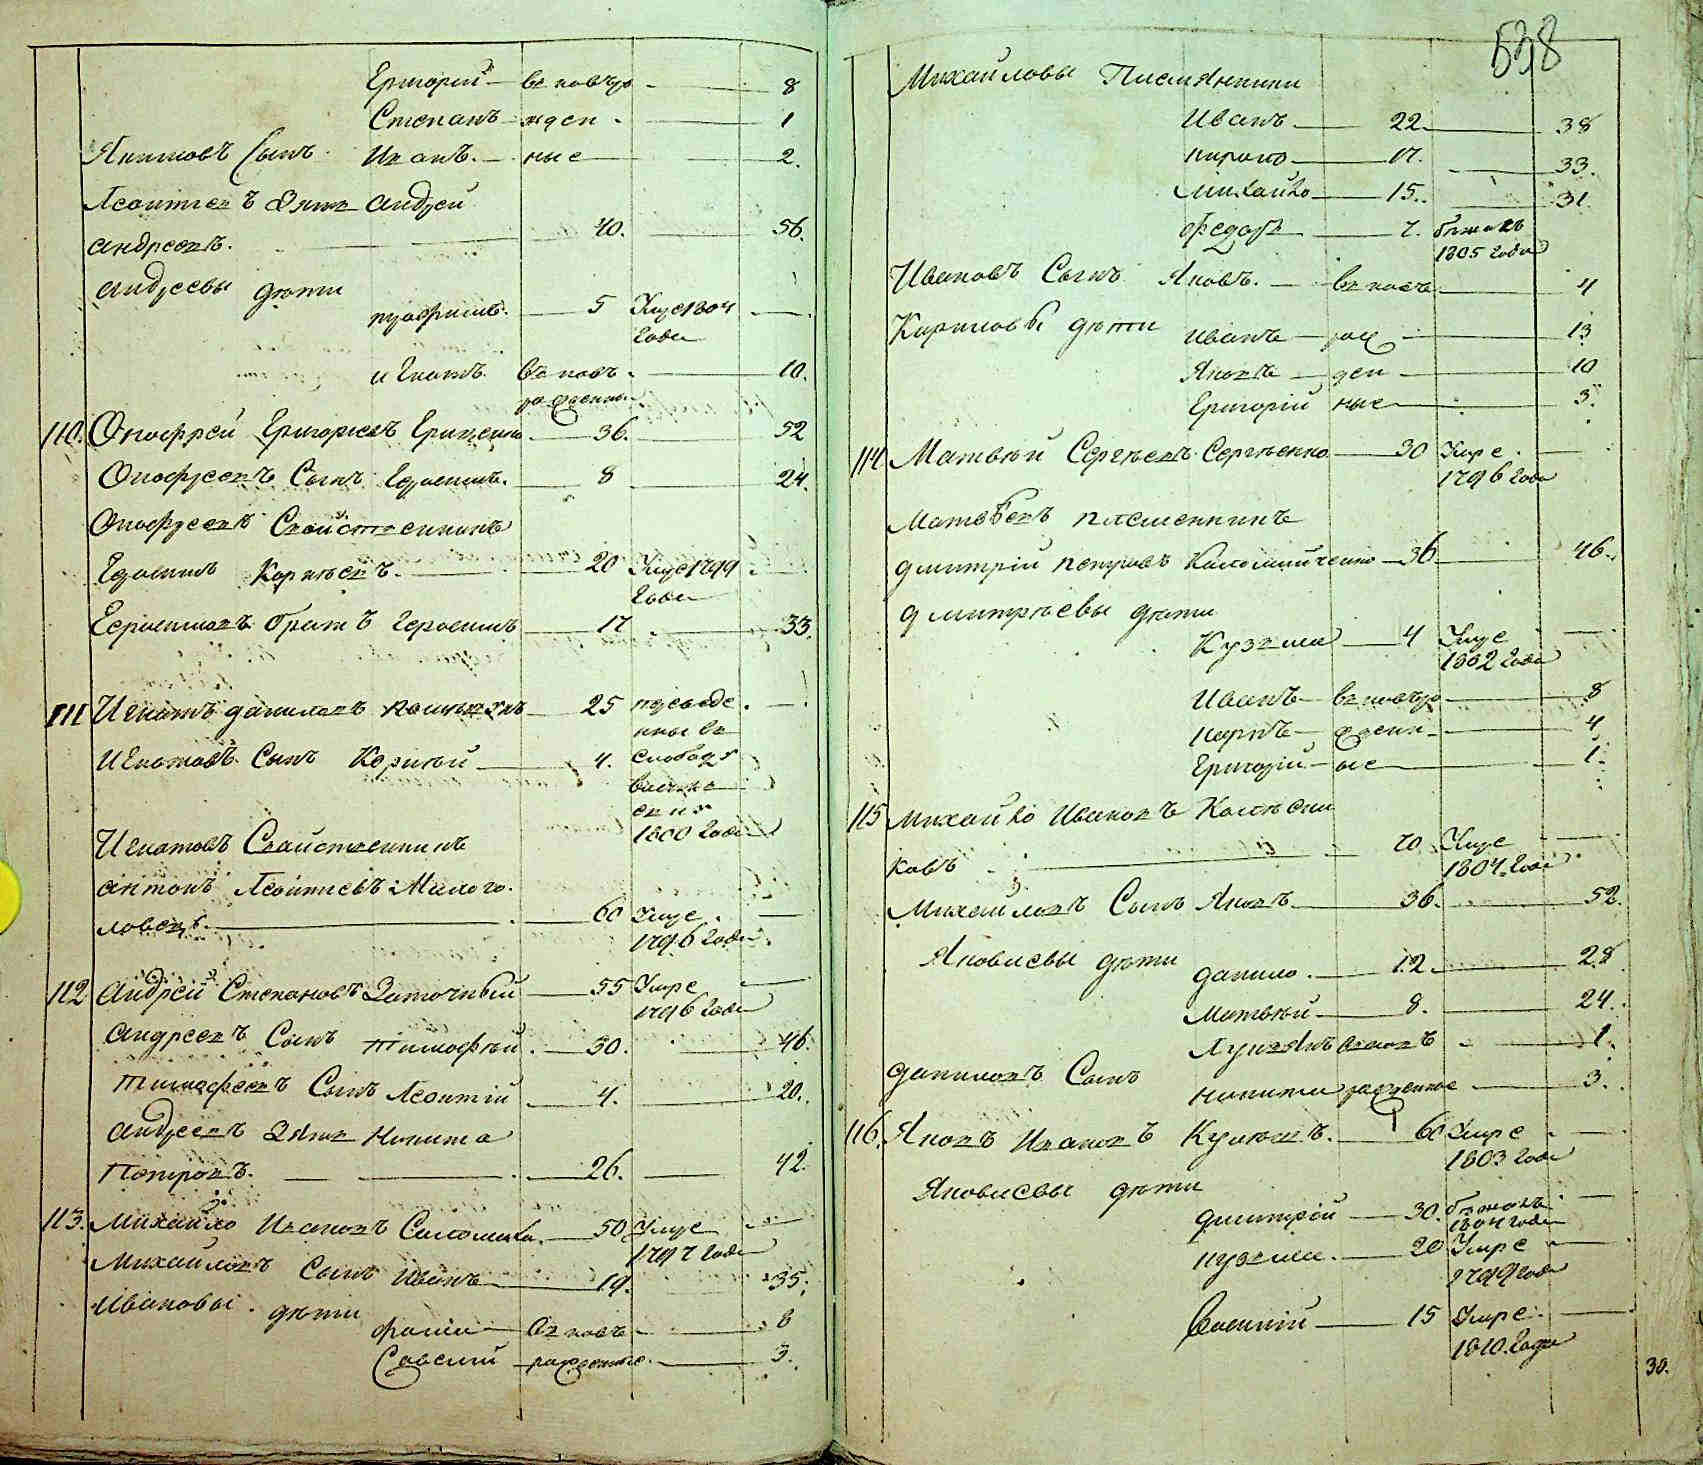 Григорій въ новъро 8
Степанъ жден 1
Якимовъ Сынъ Иванъ ные 2.
Леонтіевъ Зять Андрей
андреевъ. 40. 56.
андреевы дѣти
5 Умре 1804
года
Игнатъ въ новъ 10.
рожденны
110. Онофрей Григорьевъ Гриценко 36. 52
Онофреевъ Сынъ Герасимъ. 8 24.
Онофреевъ Свойственникъ
Герасимъ Корнѣевъ. 20 Умре 1799
года
Герасимовъ братъ Герасимъ 17 33.
111 Игнатъ даниловъ 25
нны въ
Игнатовъ Сынъ Корнѣй 4. слободу
1800 Года
Игнатовъ Свойственникъ
антонъ Леонтіевъ Милого
ловецъ. 60 Умре
1796 Года.
112 Андрей Степановъ Заточный 55 Умре
1796 Года
андреевъ Сынъ тимофѣй 30. 46.
тимофеевъ Сынъ Леонтій 4. 20.
андреевъ Зять Никита
Петровъ. 26. 42.
113. Михайло Ивановъ Саломаха. 50 Умре
1797 Года
Михайловъ Сынъ Иванъ 19. 35.
Ивановы дѣти въ новъ 8
Савелій рожденные. 3.
538
Михайловы Племянники
Иванъ 22. 38
кирило 17. 33.
Михайло 15. 31
Федоръ 7. бѣжалъ
1805 Года
Ивановъ Сынъ Яковъ. въ новъ 4
Кириловы дѣти Иванъ рож 13
Яковъ ден 10
Григорій ные 3.
114 Матвѣй Сергѣевъ Сергѣенко 30 Умре
1796 Года
Матвѣевъ племенникъ
дмитрій петровъ Коломийченко 36 46.
дмитрѣевы дѣти
Кузьма 4 Умре
1802 Года
Иванъ въ новъро 8
карпъ жденн 4
Григорій ые 1.
115 михайло Ивановъ Колѣсни
ковъ 70 Умре
1804. Года
Михайловъ Сынъ Яковъ 36. 52.
Яковлевы дѣти данило. 12. 28
Матвѣй 8. 24.
Лукьянъ вновъ 1.
даниловъ Сынъ
никита рожденные 3.
116. Яковъ Ивановъ 60 Умре
1803 Года
Яковлевы дѣти
дмитрей 30. бѣжалъ
1804 Года
кузьма. 20 Умре
1799 Года
Василій 15 Умре
1810. Года
30.